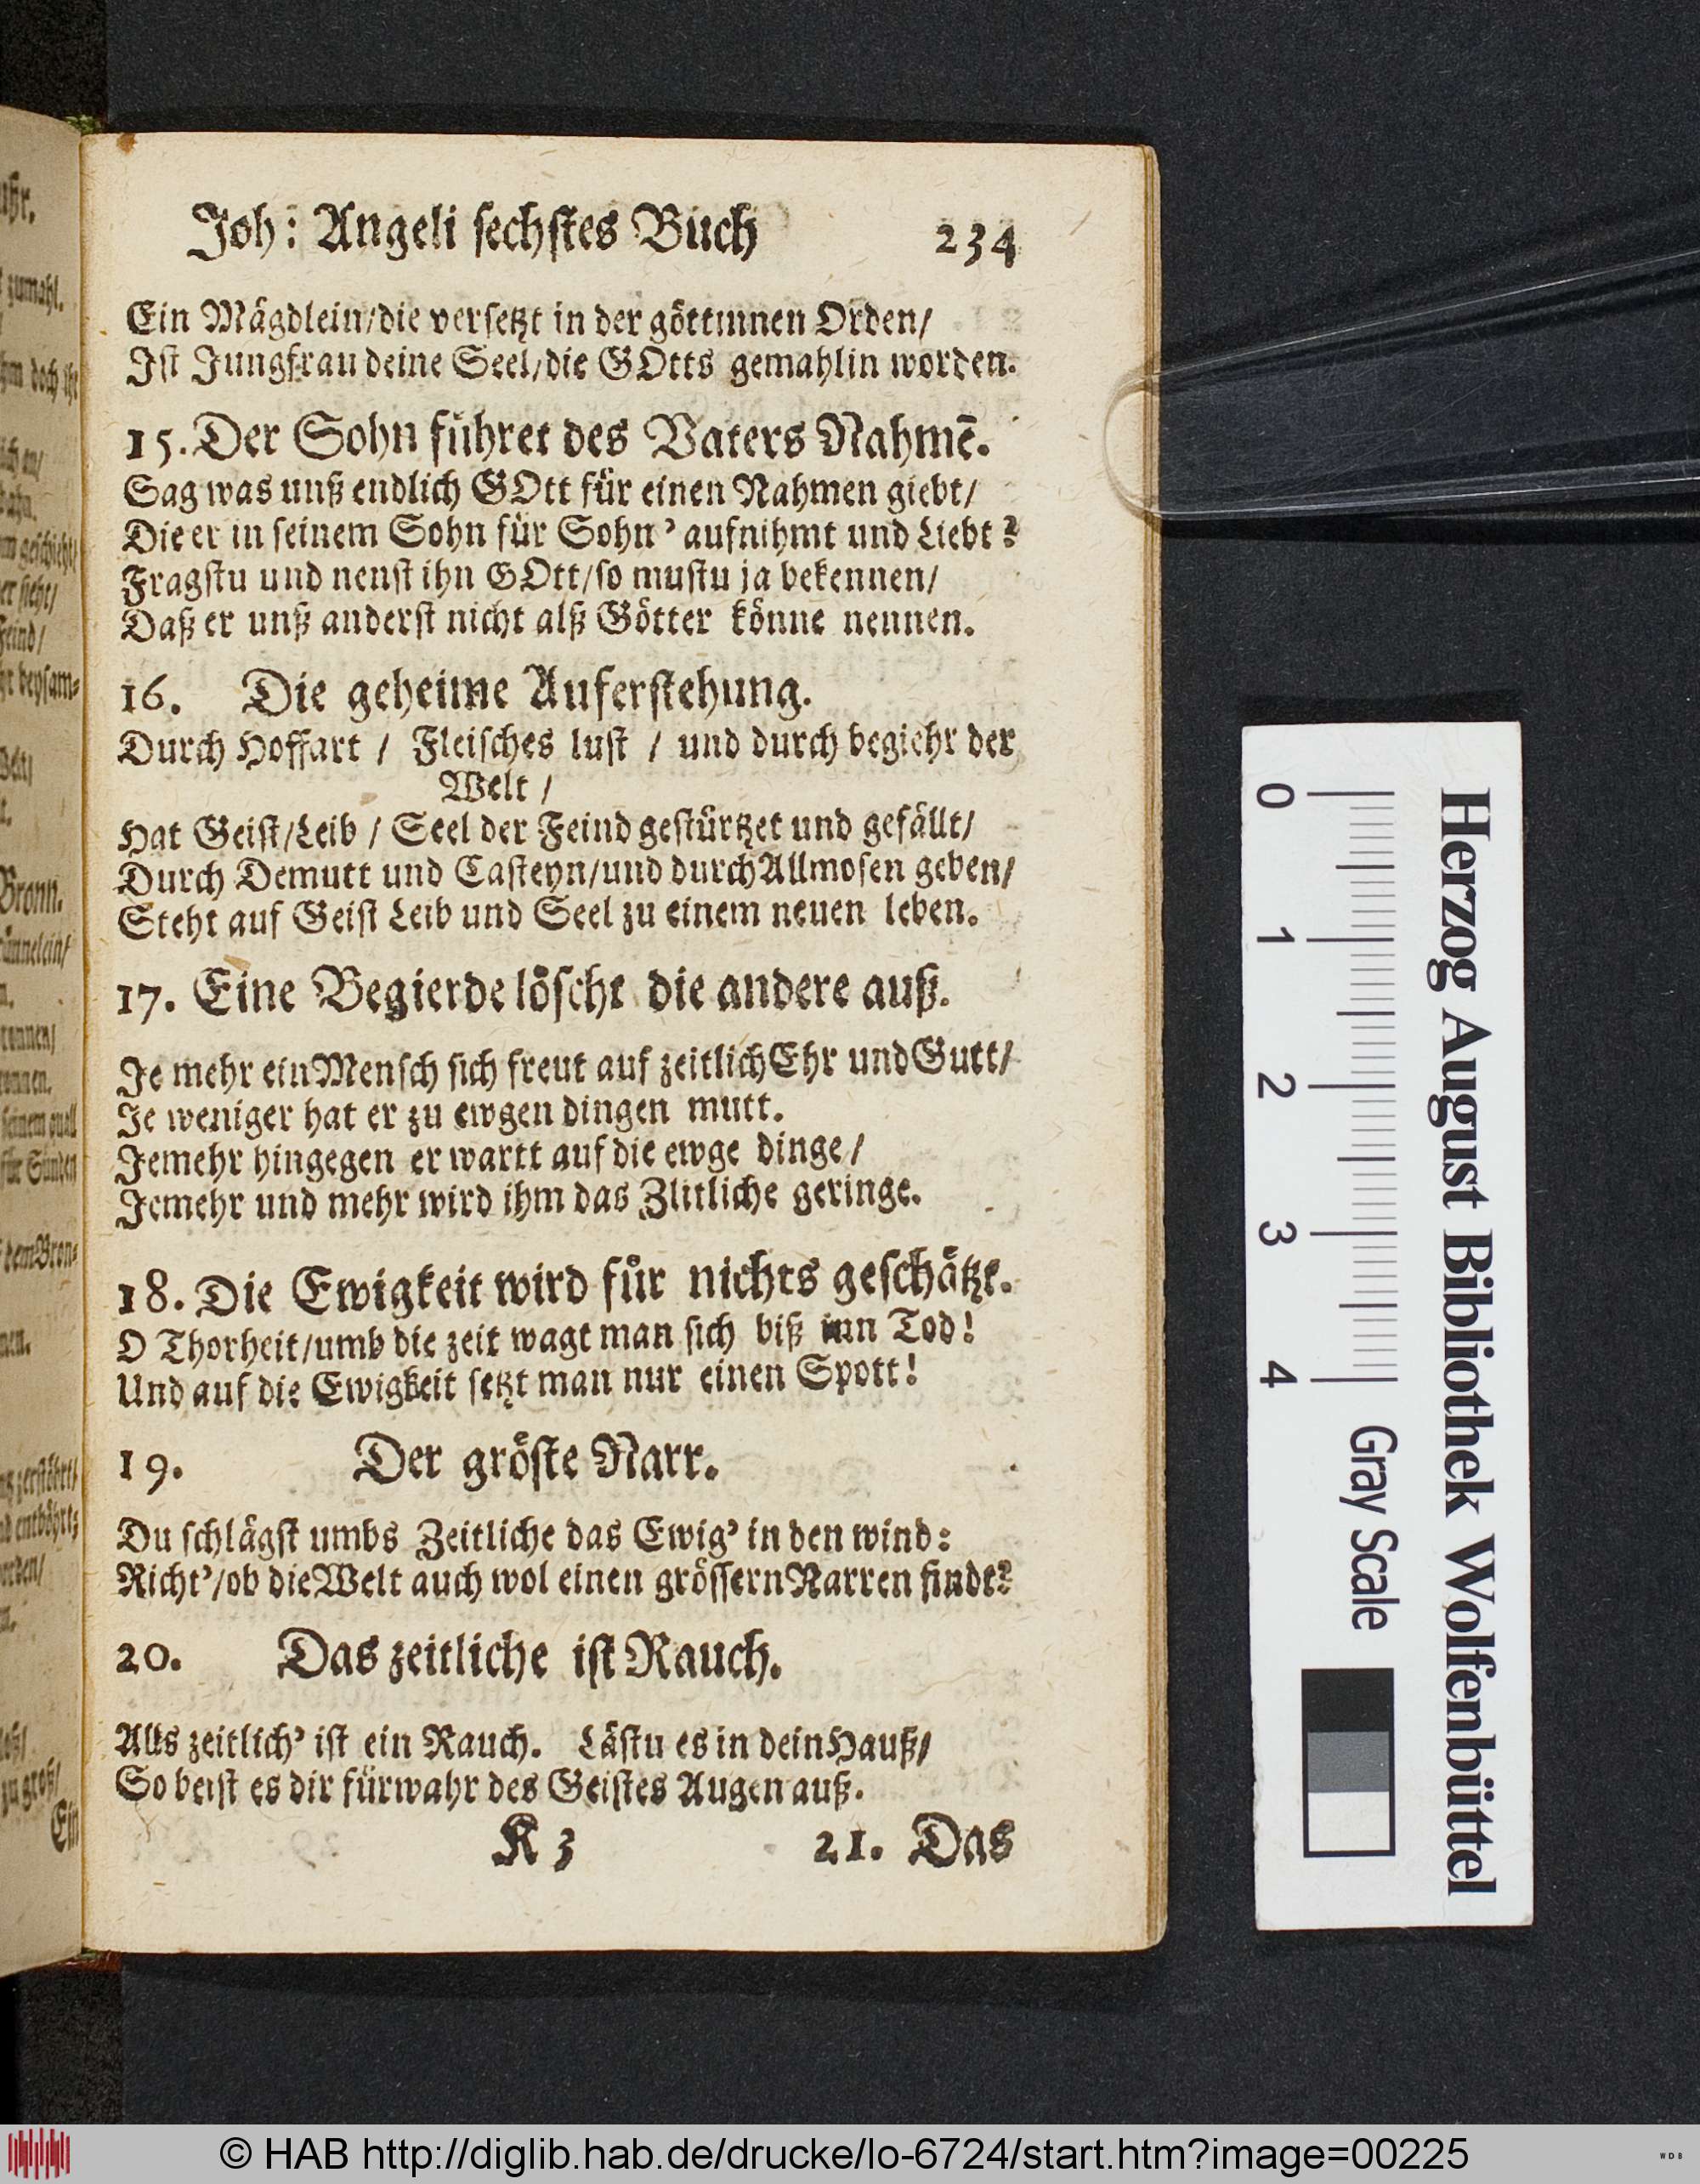 Joh: Angeli sechstes Buch 234
Ein Mägdlein/die versetzt in der göttinnen Orden/
Ist Jungfrau deine Seel/die GOtts gemahlin worden.
15. Der Sohn führet des Vaters Nahmē.
Sag was unß endlich GOtt für einen Nahmen giebt/
Die er in seinem Sohn für Sohn' aufnihmt und Liebt?
Fragstu und nenst ihn GOtt/so mustu ja bekennen/
Daß er unß anderst nicht alß Götter könne nennen.
16. Die geheime Auferstehung.
Durch Hoffart / Fleisches lust / und durch begiehr der
Welt /
Hat Geist/Leib / Seel der Feind gestürtzet und gefällt/
Durch Demutt und Casteyn/und durch Allmosen geben/
Steht auf Geist Leib und Seel zu einem neuen leben.
17. Eine Begierde löscht die andere auß.
Je mehr ein Mensch sich freut auf zeitlich Ehr und Gutt/
Je weniger hat er zu ewgen dingen mutt.
Jemehr hingegen er wartt auf die ewge dinge/
Jemehr und mehr wird ihm das Zlitliche geringe.
18. Die Ewigkeit wird für nichts geschätzt.
O Thorheit/umb die zeit wagt man sich biß inn Tod!
Und auf die Ewigkeit setzt man nur einen Spott!
19. Der gröste Narr.
Du schlägst umbs Zeitliche das Ewig' in den wind:
Richt'/ob die Welt auch wol einen grössern Narren findt?
20. Das zeitliche ist Rauch.
Alls zeitlich' ist ein Rauch. Lästu es in dein Hauß/
So beist es dir fürwahr des Geistes Augen auß.
K 3 21. Das
Herzog August Bibliothek Wolfenbüttel
0 1 2 3 4 Gray Scale
© HAB http://diglib.hab.de/drucke/lo-6724/start.htm?image=00225